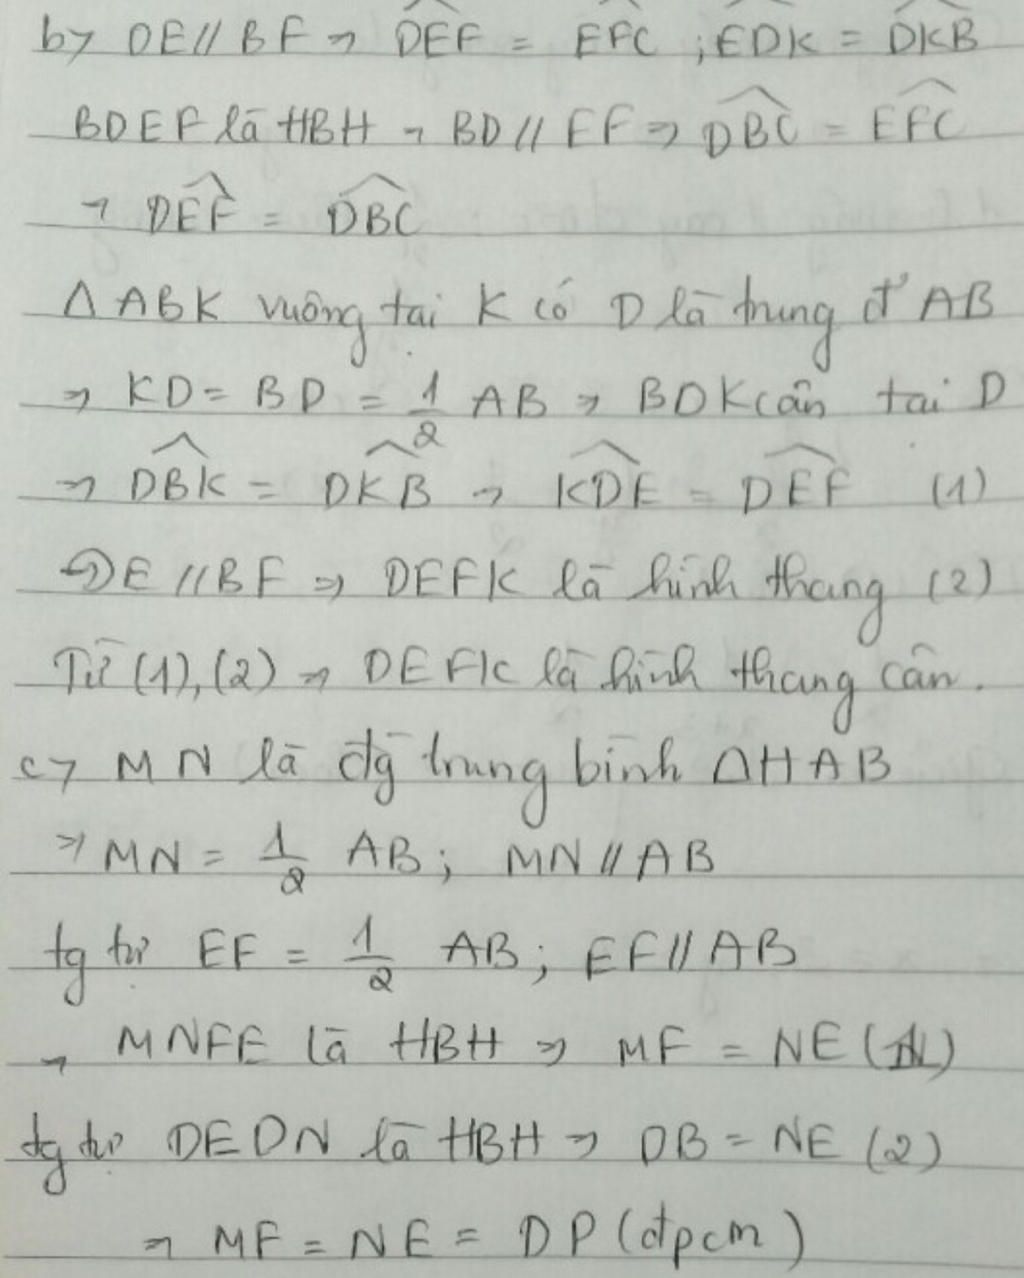 b, DE // BF → DEF = EFC ; EDK = DKB
BDEF là HBH → BD // EF ⇒ DBC = EFC
→ DEF = DBC
Δ ABK vuông tại K có D là trung đ' AB
⇒ KD = BD = 1/2 AB ⇒ BDK cân tại D
⇒ DBK = DKB → KDE = DEF (1)
DE // BF ⇒ DEFK là hình thang (2)
Từ (1), (2) ⇒ DEFK là hình thang cân.
c, MN là đg trung bình ΔHAB
⇒ MN = 1/2 AB; MN // AB
tg tự EF = 1/2 AB; EF // AB
→ MNFE là HBH ⇒ MF = NE (1)
tg tự DEDN là HBH ⇒ DB = NE (2)
→ MF = NE = DP (đpcm)